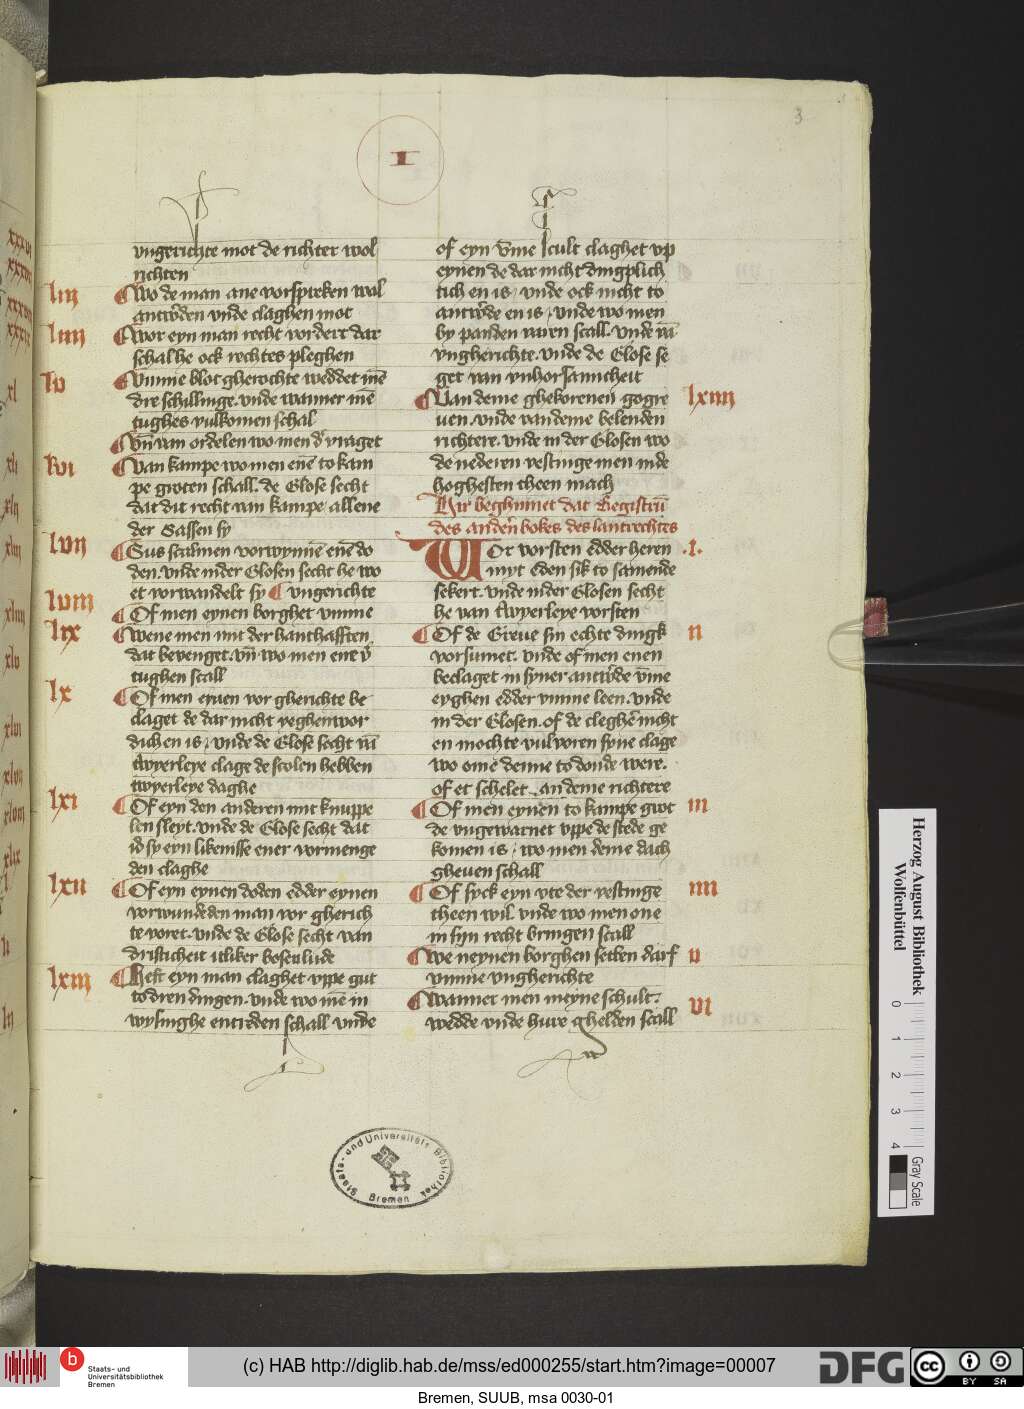 3
I
vngerichte mot de richter wol
richten
liii
Wo de man ane vorspreken wal
antwerden vnde claghen mot
liiii
Wor eyn man recht vordert dar
schal he ock rechtes pleghen
lv
Vmme blot gherochte weddet me
dre schillinge. vnde wanner me
tughes vulkomen schal
vn van ordelen wo men der vraget
lvi
Van kampe wo men ene to kam
pe groten schall. de Glose secht
dat dit recht van kampe allene
der Sassen sy
lvii
Sus scalmen vorwynne ene do
den. vnde in der Glosen secht he wo
et vorwandelt sy vngerichte
lviii
Of men eynen borghet vmme
lix
Wene men mit der hanthafften
dat bevenget. vn wo men ene
tughen scall
lx
Of men eynen vor gherichte be
claget de dar nicht yeghenwor
dich en is, vnde de Glose secht van
twyerleye clage de scolen hebben
twyerleye daghe
lxi
Of eyn den anderen mit knuppe
len sleyt. vnde de Glose secht dat
id sy eyn likenisse ener vormenge
den claghe
lxii
Of eyn eynen doden edder eynen
vorwundeden man vor gherich
te voret. vnde de Glose secht van
dristicheit itliker bosen lude
lxiii
Heft eyn man claghet vppe gut
to dren dingen. vnde wo me in
wysinghe entreden schall vnde
of eyn vmme scult claghet vp
eynen de dar nicht dingplich
tich en is, vnde ock nicht to
antwerde en is, vnde wo men
by panden varen scall. vnde van
vngherichte. vnde de Glose se
get van vnhorsamicheit
lxiiii
Van deme ghekorenen gogre
uen. vnde van deme belenden
richtere. vnde in der Glosen wo
de nederen vestinge men in de
hoghesten theen mach
Hir beghinnet dat Registru
des anderen bokes des lantrechtes
.I.
Wor vorsten edder heren
myt eden sik to samende
sekert. vnde in der Glosen secht
he van twyerleye vorsten
II
Of de Greue sin echte dingk
vorsumet. vnde of men enen
beclaget in syner antwerde vmme
eyghen edder vmme leen. vnde
in der Glosen. of de clegher nicht
en mochte vulvoren syne clage
wo ome denne to donde were.
of et schelet an deme richtere
III
Of men eynen to kampe grot
de vngewarnet vppe de stede ge
komen is, wo men deme dach
gheuen schall
IIII
Of syck eyn vte der vestinge
theen wil. vnde wo men one
in syn recht bringen scall
V
We neynen borghen setten darf
vmme vngherichte
VI
Wanner men meyne schult.
wedde vnde hure ghelden scall
Staats- und Universitäts Bibliothek
Bremen
Herzog August Bibliothek
Wolfenbüttel
0 1 2 3 4
Gray Scale
b
Staats- und
Universitätsbibliothek
Bremen
(c) HAB http://diglib.hab.de/mss/ed000255/start.htm?image=00007
DFG
cc
BY SA
Bremen, SUUB, msa 0030-01